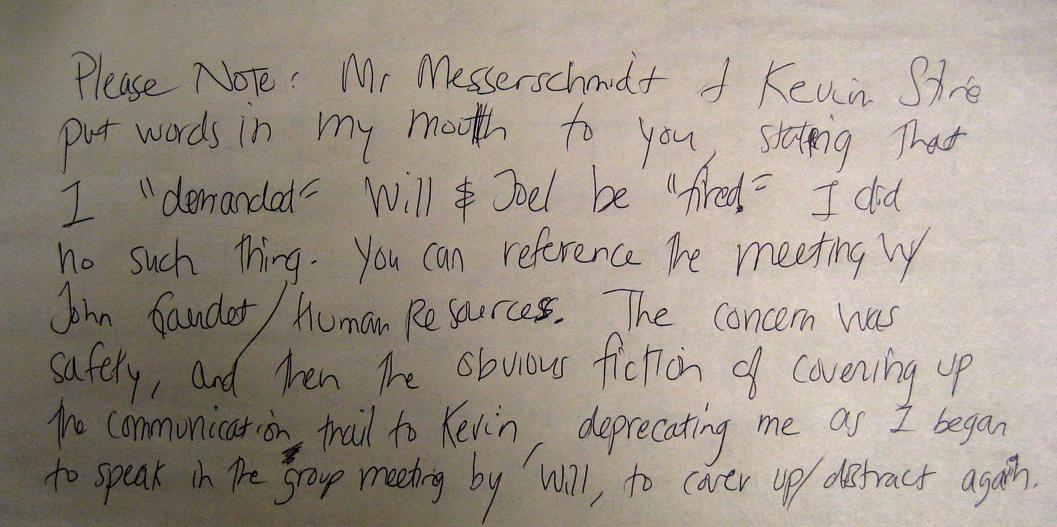 Please Note: Mr Messerschmidt & Kevin
put words in my mouth to you, stating that
I "demanded" Will & Joel be "fired." I did
no such thing. You can reference the meeting w/
John Gaudet/Human Resources. The concern was
safety, and then the obvious fiction of covering up
the communication trail to Kevin, deprecating me as I began
to speak in the group meeting by Will, to cover up/distract again.